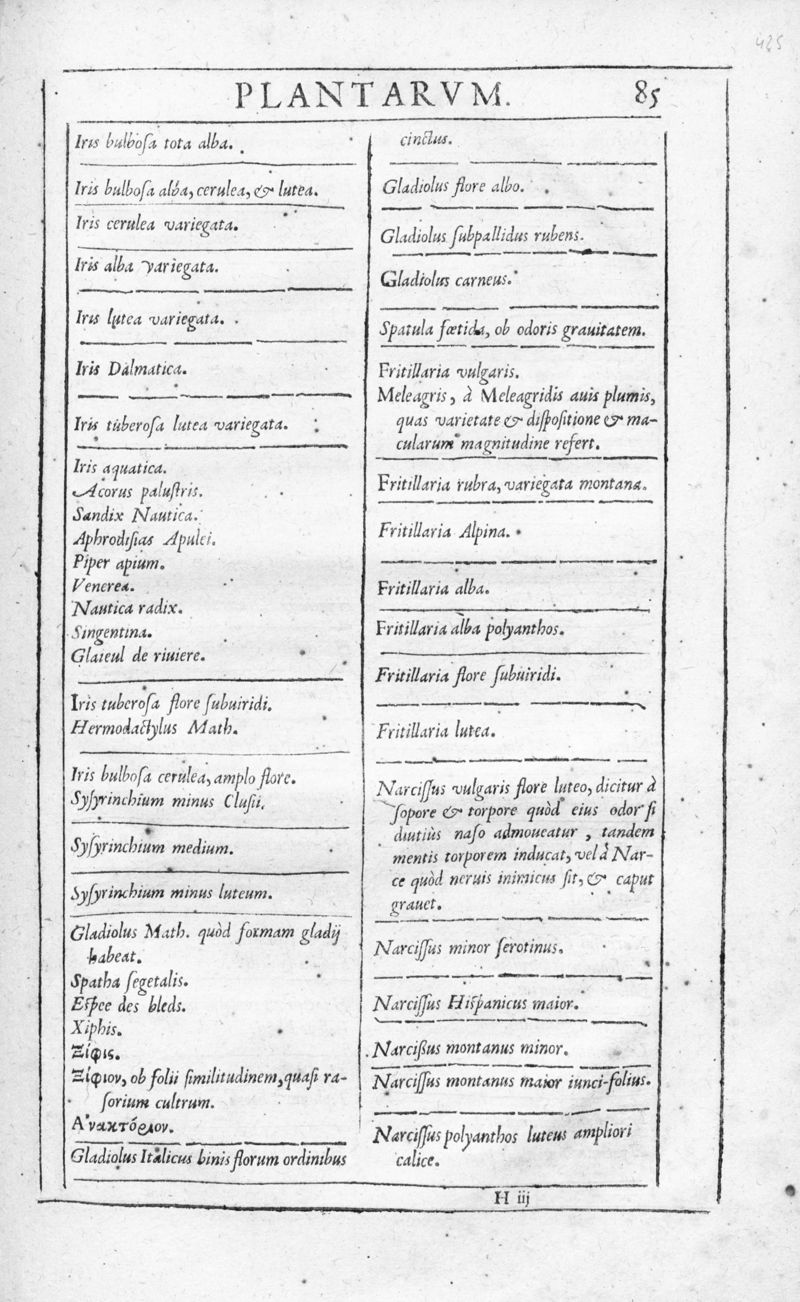 425
PLANTARVM. 85
Iris bulbosa tota alba.
Iris bulbosa alba, cerulea, & lutea.
Iris cerulea variegata.
Iris alba variegata.
Iris lutea variegata.
Iris Dalmatica.
Iris tuberosa lutea variegata.
Iris aquatica.
Acorus palustris.
Sandix Nautica.
Aphrodisias Apulei.
Piper apium.
Venerea.
Nautica radix.
Singentina.
Glaieul de riuiere.
Iris tuberosa flore subuiridi.
Hermodactylus Math.
Iris bulbosa cerulea, amplo flore.
Sysyrinchium minus Clusii.
Sysyrinchium medium.
Sysyrinchium minus luteum.
Gladiolus Math. quòd formam gladij
habeat.
Spatha segetalis.
Espee des bleds.
Xiphis.
Ξίφις.
Ξίφιον, ob folii similitudinem, quasi ra-
sorium cultrum.
Ἀνακτόριον.
Gladiolus Italicus binis florum ordinibus
cinctus.
Gladiolus flore albo.
Gladiolus subpallidus rubens.
Gladiolus carneus.
Spatula fœtida, ob odoris grauitatem.
Fritillaria vulgaris.
Meleagris, à Meleagridis auis plumis,
quas varietate & dispositione & ma-
cularum magnitudine refert.
Fritillaria rubra, variegata montana.
Fritillaria Alpina.
Fritillaria alba.
Fritillaria alba polyanthos.
Fritillaria flore subuiridi.
Fritillaria lutea.
Narcissus vulgaris flore luteo, dicitur à
sopore & torpore quòd eius odor si
diutiùs naso admoueatur, tandem
mentis torporem inducat, vel à Nar-
ce quòd neruis inimicus sit, & caput
grauet.
Narcissus minor serotinus.
Narcissus Hispanicus maior.
Narcißus montanus minor.
Narcissus montanus maior iunci-folius.
Narcissus polyanthos luteus ampliori
calice.
H iij